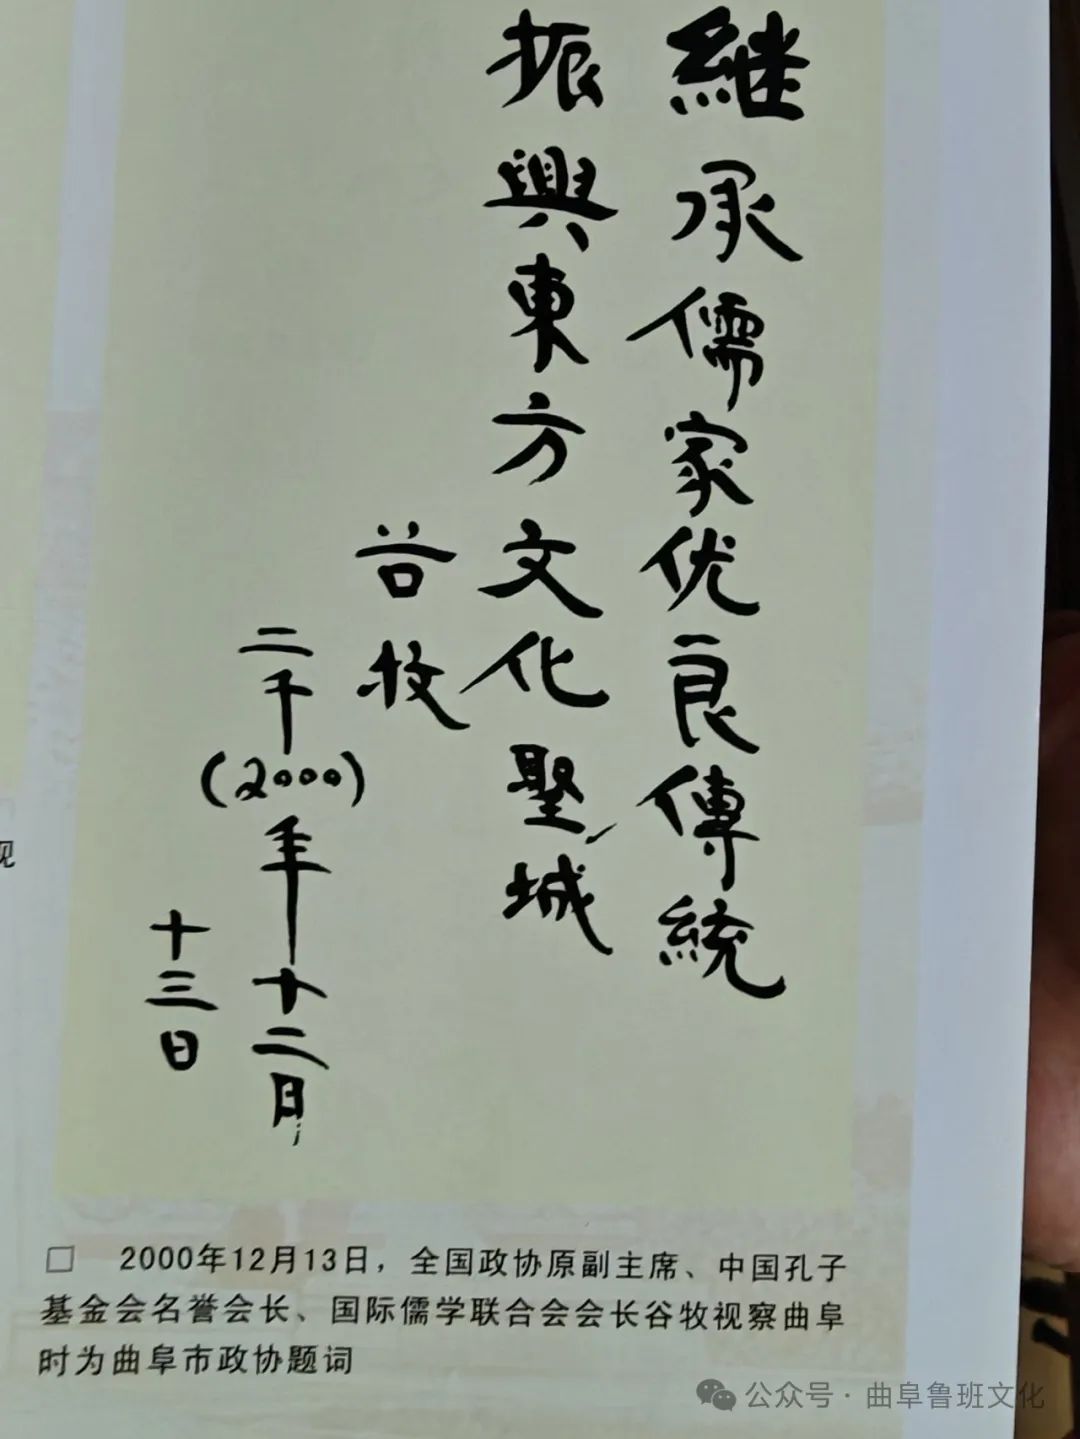 继承儒家优良傳統
振興東方文化聖城
谷牧
二千(2000)年十二月
十三日
□ 2000年12月13日，全国政协原副主席、中国孔子
基金会名誉会长、国际儒学联合会会长谷牧视察曲阜
时为曲阜市政协题词
现
公众号·曲阜鲁班文化